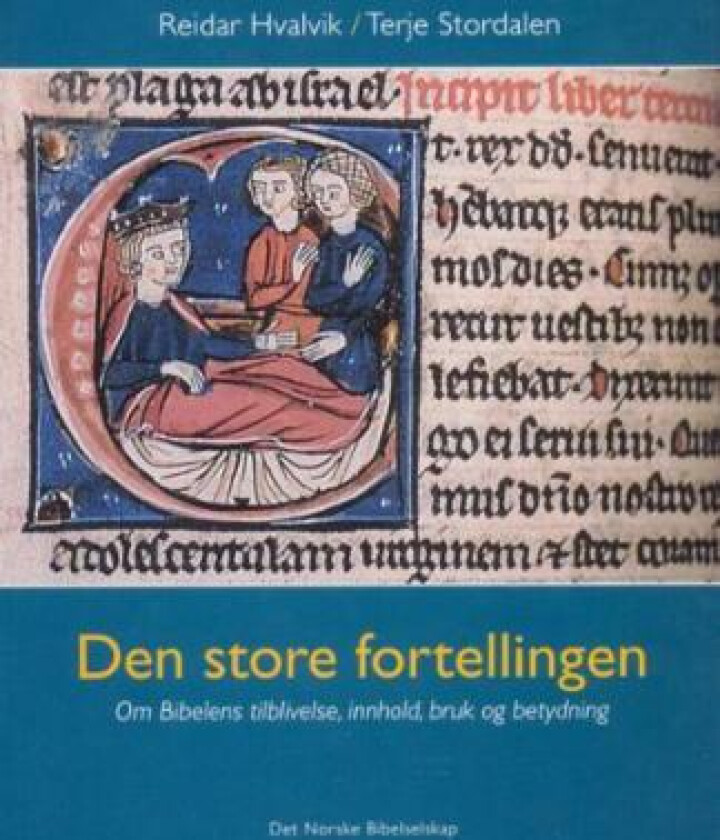 Reidar Hvalvik / Terje Stordalen
est plaga ab israel. Incipit liber
t. rex dd. senuerat
etatis
mos dies.
retur uestibz non
lefiebat. Dixerunt
go ei serui sui.
mus dño nostro
adolescentulam uirginem stet coram
Den store fortellingen
Om Bibelens tilblivelse, innhold, bruk og betydning
Det Norske Bibelselskap